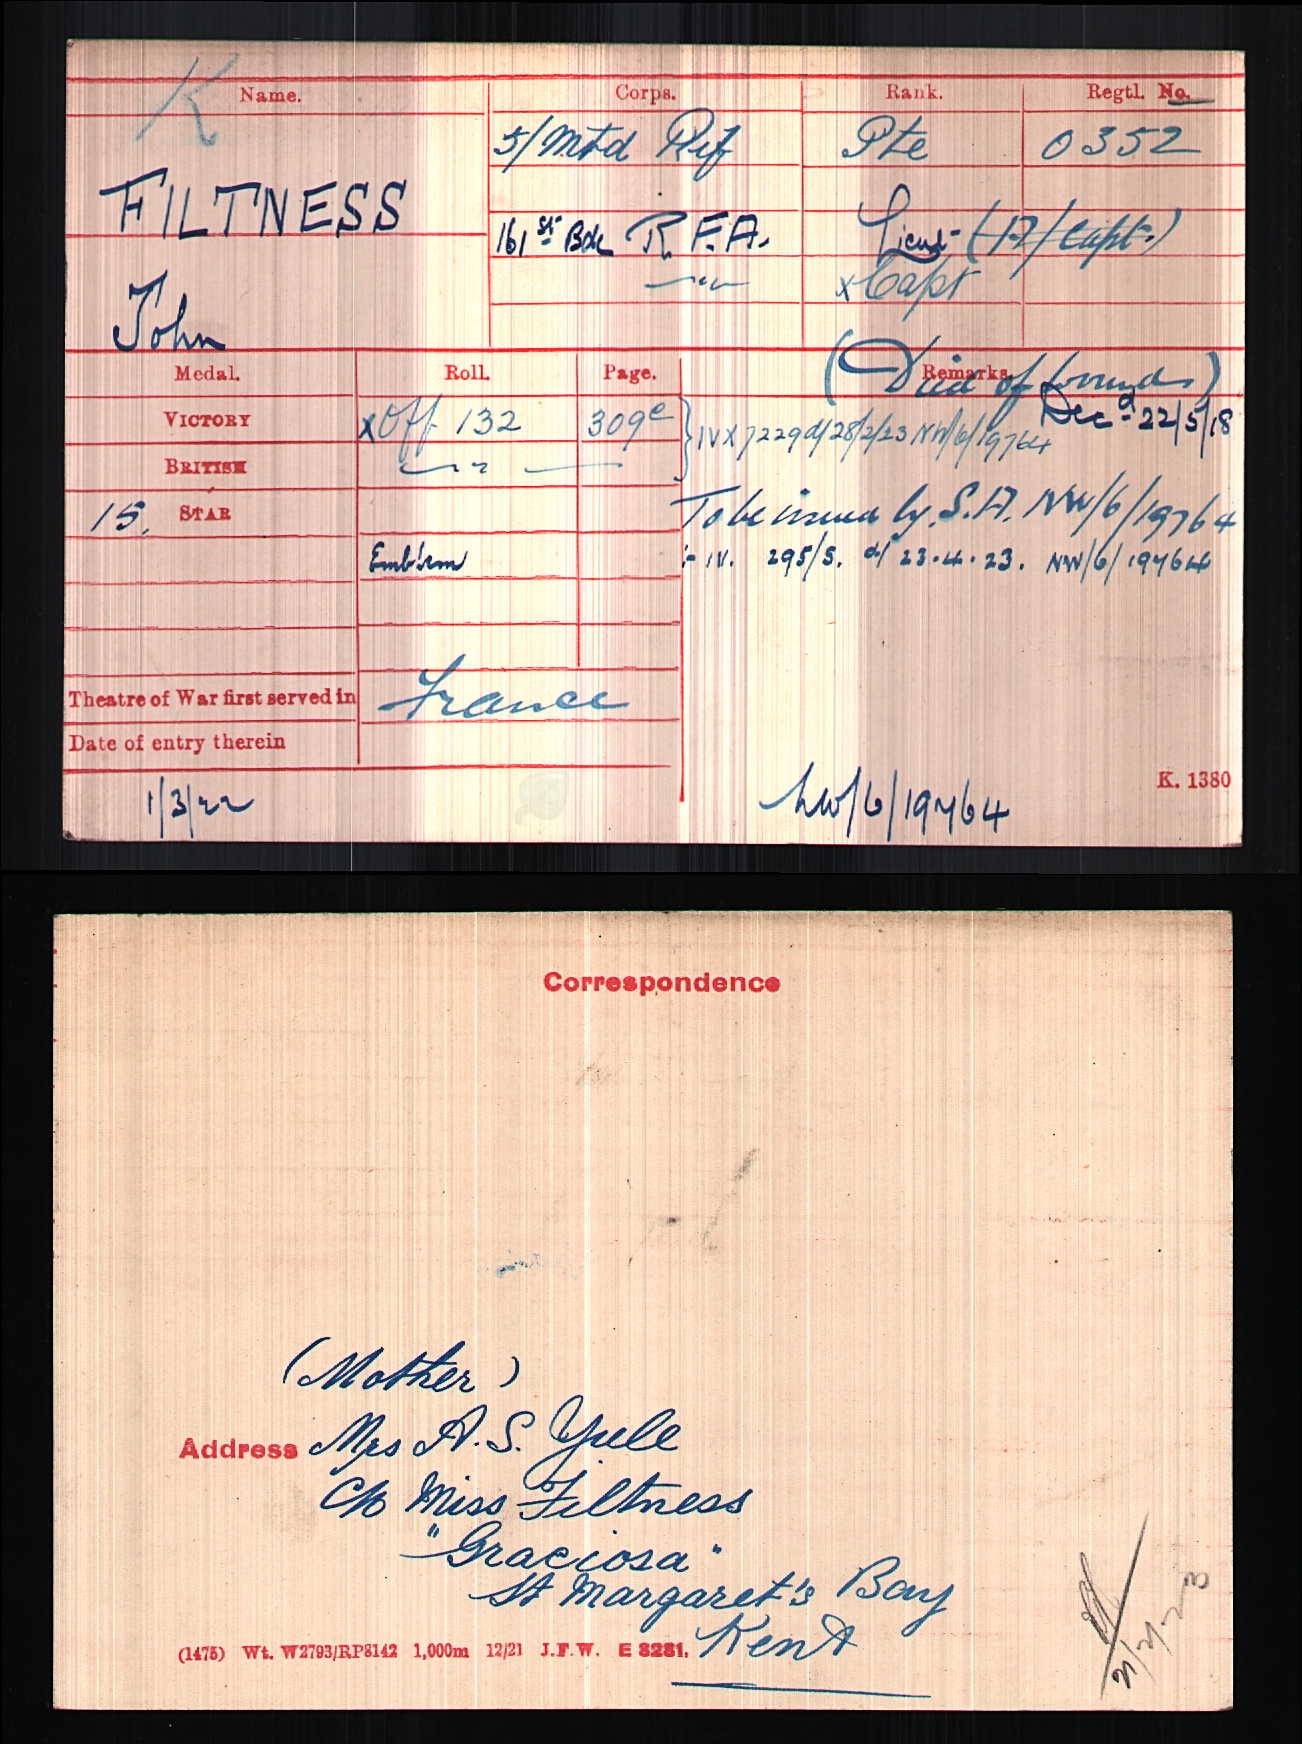 K
Name. Corps. Rank. Regtl. No.
FILTNESS
John
5/Mtd Rif Pte 0352
161st Bde R.F.A. Lieut- (-A/Capt.)
x Capt
Medal. Roll. Page. Remarks.
(Died of Wounds)
Decd 22/5/18
VICTORY x Off 132 309e } IVX/7229 d/28/2/23 NW/6/19764
BRITISH
15. STAR To be issued by S.A. NW/6/19764
Emblem :- IV. 295/S. d/ 23.4.23. NW/6/19764
Theatre of War first served in France
Date of entry therein
1/3/22 NW/6/19764
K. 1380
Correspondence
(Mother)
Address Mrs A. S. Yule
c/o Miss Filtness
"Graciosa"
St Margaret's Bay
Kent
(1475) Wt. W2793/RP8142 1,000m 12/21 J.F.W. E 8281.